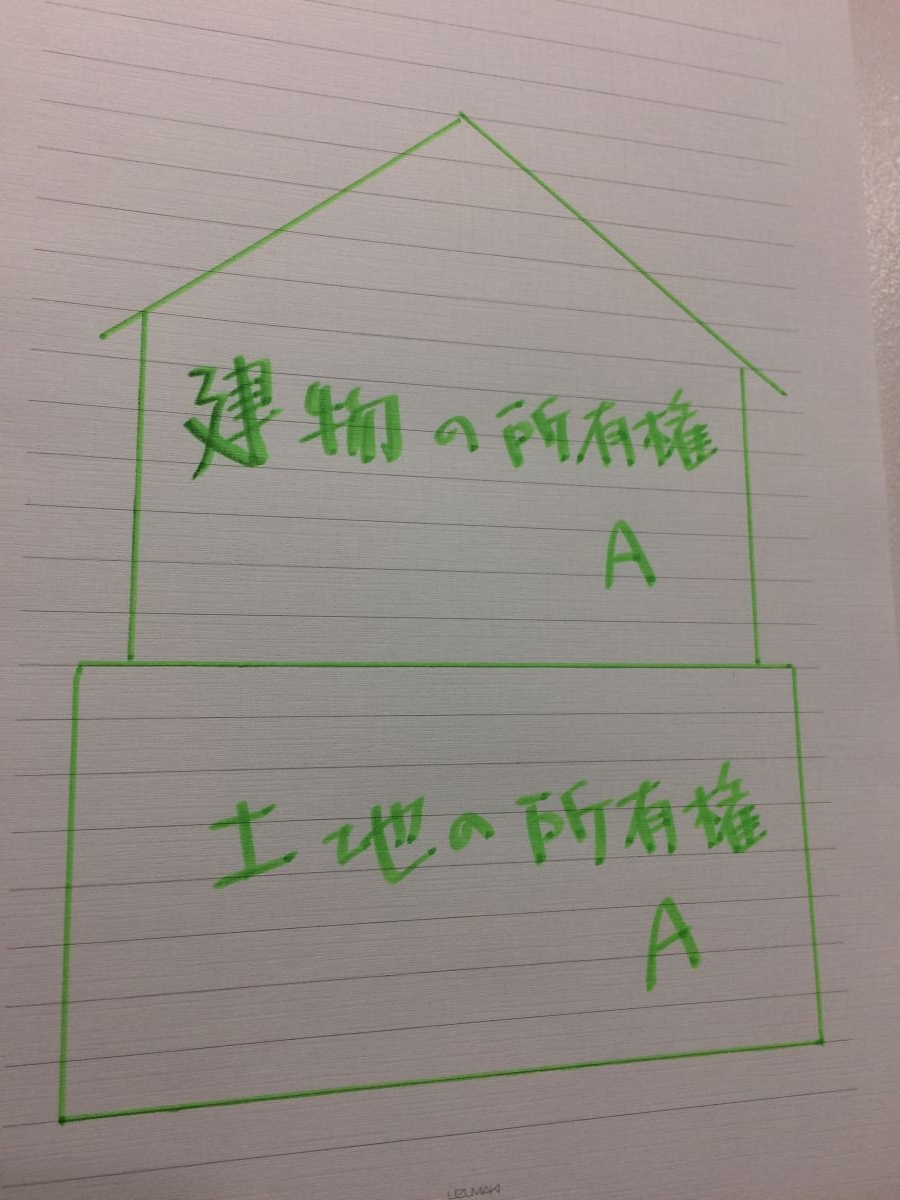 建物の所有権
A
土地の所有権
A
UZUMAKI